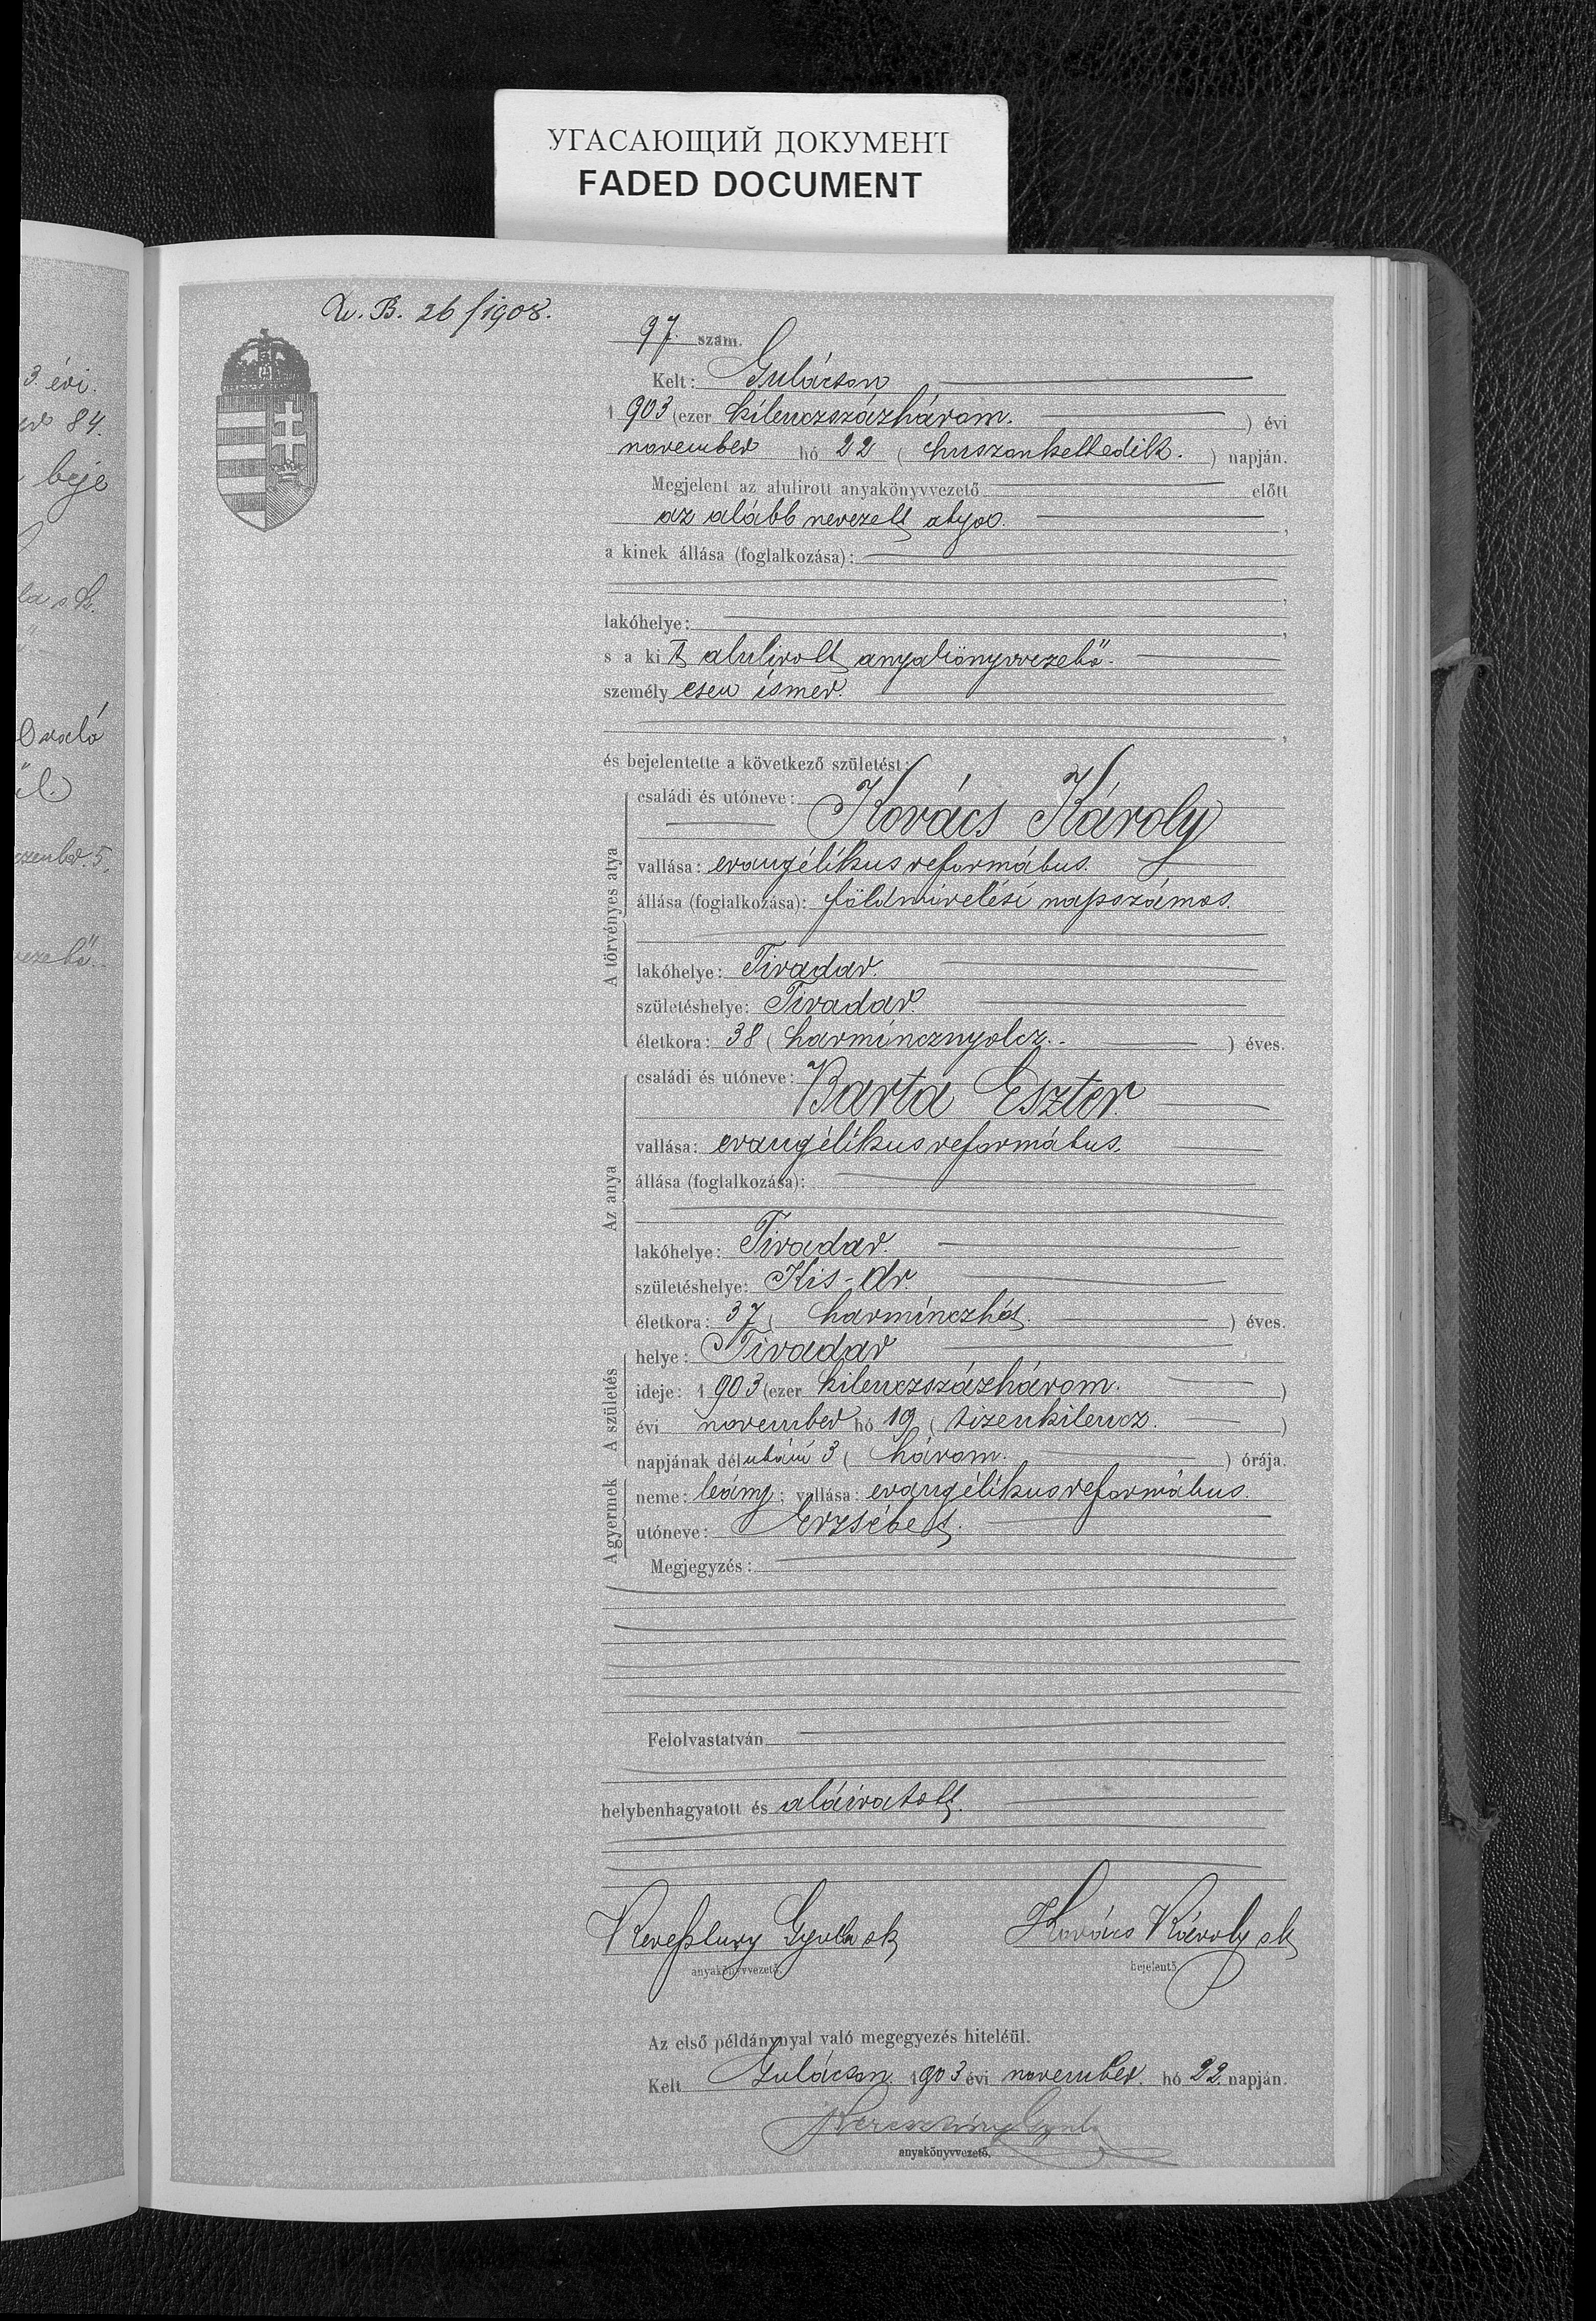 УГАСАЮЩИЙ ДОКУМЕНТ
FADED DOCUMENT
3. évi.
84.
beje
Való
ül.
5.
B. 26/1908.
97. szám.
Kelt: Gulácson
1903 (ezer kilenczszázhárom. ) évi
november hó 22 ( huszonkettedik. ) napján.
Megjelent az alulirott anyakönyvvezető előtt
az alább nevezett atya.
a kinek állása (foglalkozása):
lakóhelye:
s a kit alulirott anyakönyvvezető.
személyesen ismer.
és bejelentette a következő születést:
A törvényes atya
családi és utóneve: Kovács Károly
vallása: evangélikus református.
állása (foglalkozása): földmivelési napszámos.
lakóhelye: Tivadar.
születéshelye: Tivadar.
életkora: 38 ( harmincznyolcz. ) éves.
Az anya
családi és utóneve: Barta Eszter
vallása: evangélikus református.
állása (foglalkozása):
lakóhelye: Tivadar.
születéshelye: Kis-Ar.
életkora: 37 ( harminczhét. ) éves.
A születés
helye: Tivadar
ideje: 1903 (ezer kilenczszázhárom. )
évi november hó 19 ( tizenkilencz. )
napjának délutáni 3 ( három. ) órája.
A gyermek
neme: leány; vallása: evangélikus református.
utóneve: Erzsébet.
Megjegyzés:
Felolvastatván
helybenhagyatott és aláiratott.
Gyula sk Kovács Károly sk
anyakönyvvezető. bejelentő.
Az első példánynyal való megegyezés hiteléül.
Kelt Gulácson 1903 évi november. hó 22. napján.
Gyula
anyakönyvvezető.